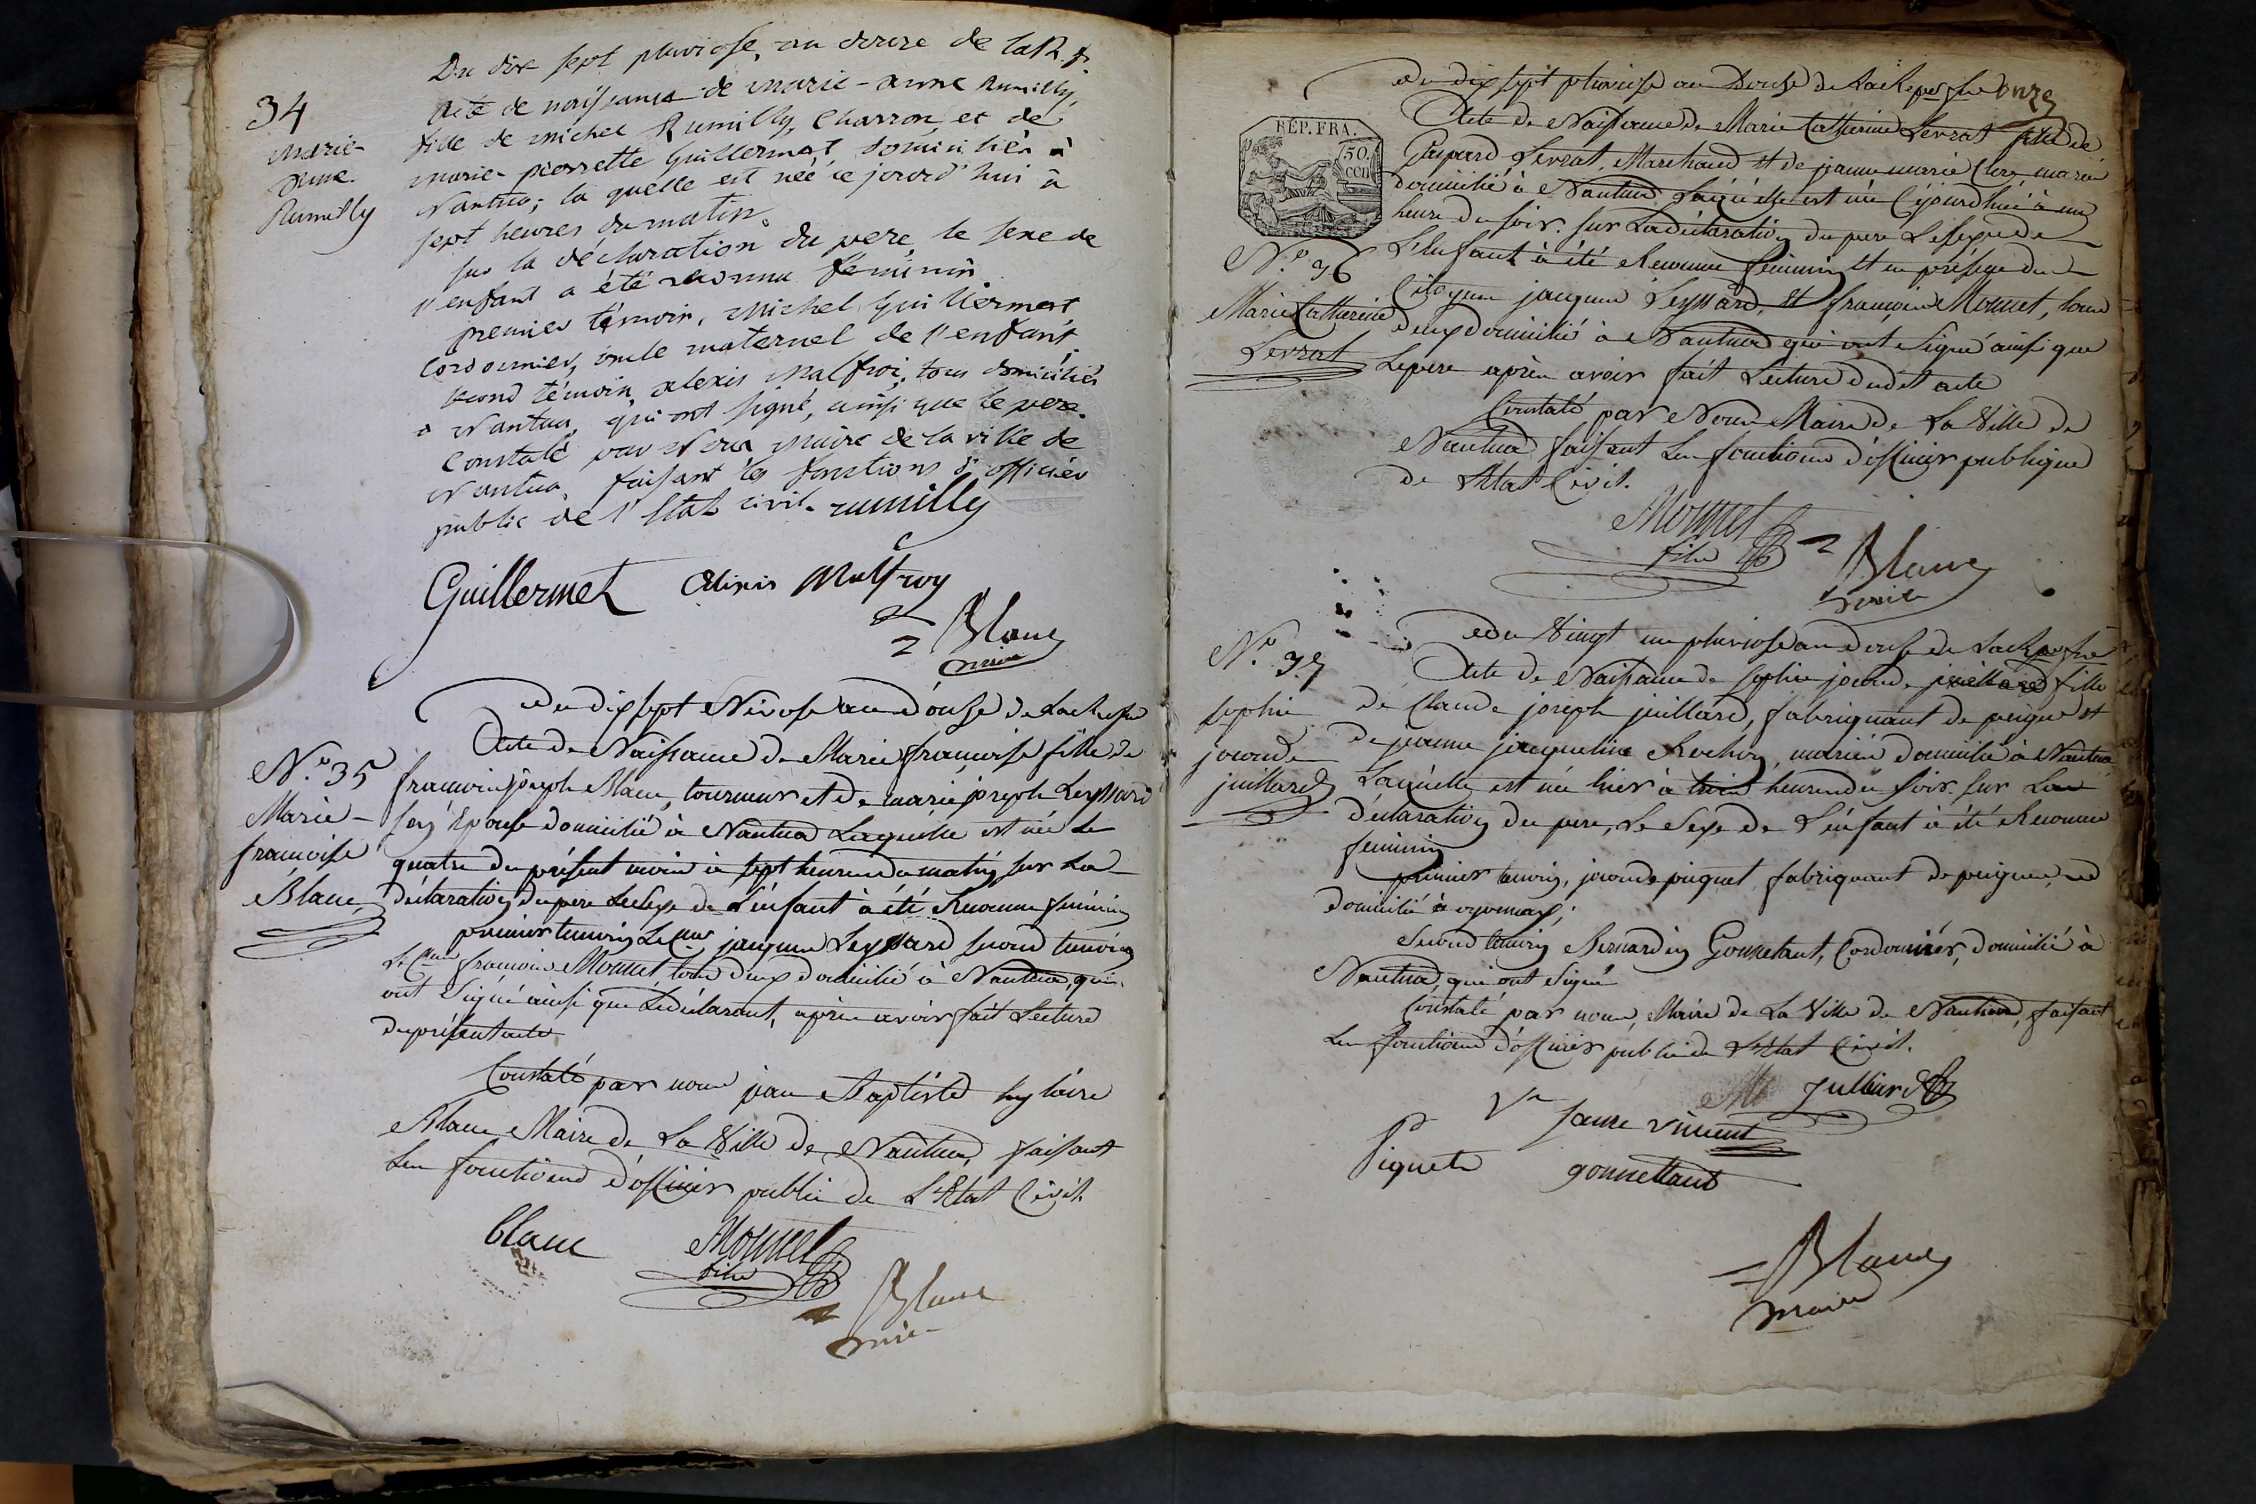 Du dix sept pluviose, an douze de la R. f.
34
Acte de naissance de marie-anne Rumilly,
marie-
anne
Rumilly
fille de michel Rumilly, Charron, et de
marie-pierrette Guillermet, domiciliés à
Nantua; la quelle est née ce jourd'hui à
sept heures du matin.
sur la déclaration du pere, le sexe de
l'enfant a été reconnu féminin
premier témoin, michel Guillermet
Cordonnier, oncle maternel de l'enfant,
second témoin alexis malfroi; tous domiciliés
à Nantua, qui ont signé, ainsi que le pere.
Constaté par Nous maire de la ville de
Nantua, faisant les fonctions d'officier
public de l'Etat civil. rumilly
Guillermet alexis malfroy
Blanc
maire
Du dix sept Nivose an douze de La
N.º 35
Marie-
francoise
Blanc
Acte de Naissance de Marie françoise fille de
françois joseph Blanc, tourneur et de marie joseph Leyssard
son Epouse domicilié à Nantua Laquelle est née Le
quatre du présent mois à sept heures du matin sur La
déclaration du pere Le Sexe de L'énfant à été Reconnu féminin
premier temoin Le Cen jacques Leyssard second temoin
Le Cen francois Monnet, tous deux domicilié à Nantua, qui
ont Signé ainsi que Le déclarant, après avoir fait Lecture
du présent acte
Constaté par nous jean Baptiste hylaire
Blanc Maire de La Ville de Nantua, faisant
Les fonctions d'officier public de L'Etat Civil.
blanc Monnet
fils
Blanc
maire
Du dix sept pluviose an Douse de La Rep. fse onze
RÉP. FRA.
50.
CEN
Acte de Naissance de Marie Catherine Levrat fille de
Gaspard Levrat, Marchand et de jeanne marie Clerc, mariés
domicilié à Nantua Laquelle est née Cejourdhui à une
heure du soir. sur La déclaration du pere Le sexe de
N.º 36
Marie Catherine
Levrat
L'Enfant à été Reconnu féminin Et en présence du
Citoyen jacques Leyssard, Et françois Monnet, tous
deux domicilié à Nantua qui ont Signé ainsi que
Le pere après avoir fait Lecture dudit acte
Constaté par Nous Maire de La Ville de
Nantua faisant Les fonctions d'officier publique
de l'Etat Civil.
Monnet
fils
Blanc
maire
N.º 37
sophie
joconde
juillard
Du Vingt un pluviose an douse de La Rep. fse
Acte de Naissance de sophie joconde juillard fille
de Claude joseph juillard, fabriquant de peigne et
de jeanne jacqueline Rochon, mariés domicilié à Nantua
Laquelle est née hier à trois heures du soir. sur La
déclaration du pere, Le Sexe de L'énfant à été Reconnu
féminin
premier temoin, joconde piquet, fabriquant de peignes,
domicilié à oyonnax;
Second temoin Bernardin Gonnetant, Cordonnier, domicilié à
Nantua, qui ont Signé
Constaté par nous, Maire de La Ville de Nantua, faisant
Les fonctions d'officier public de L'Etat Civil.
Julliard
vincent
Piquet gonnettant
Blanc
maire